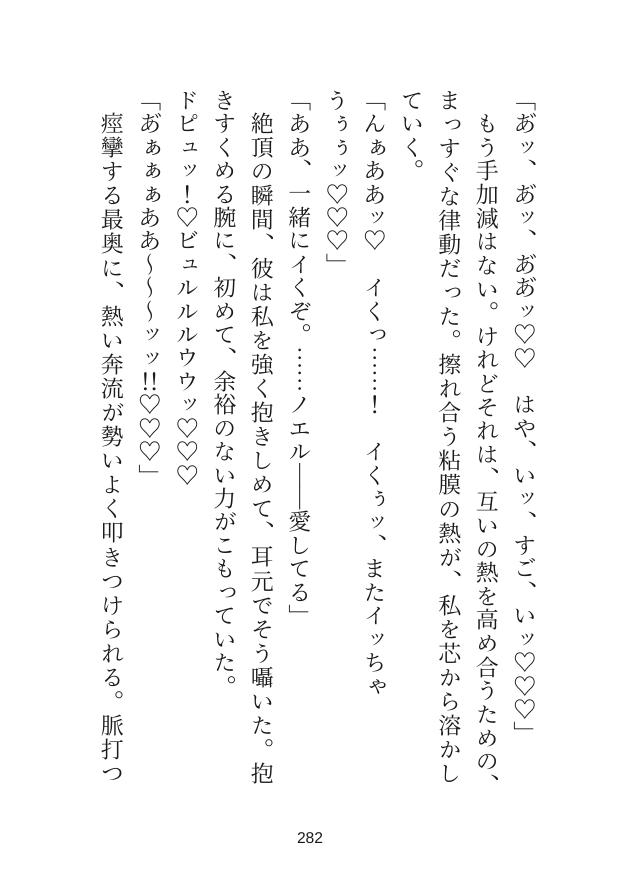 「あ゙ッ、あ゙ッ、あ゙あ゙ッ♡♡　はや、いッ、すご、いッ♡♡♡」
　もう手加減はない。けれどそれは、互いの熱を高め合うための、
まっすぐな律動だった。擦れ合う粘膜の熱が、私を芯から溶かし
ていく。
「んぁああッ♡　イくっ……！　イくぅッ、またイッちゃ
うぅぅッ♡♡♡」
「ああ、一緒にイくぞ。……ノエル――愛してる」
　絶頂の瞬間、彼は私を強く抱きしめて、耳元でそう囁いた。抱
きすくめる腕に、初めて、余裕のない力がこもっていた。
ドピュッ！♡ビュルルルウウッ♡♡♡
「あ゙ぁぁぁああ～～～ッッ!!♡♡♡」
　痙攣する最奥に、熱い奔流が勢いよく叩きつけられる。脈打つ
282